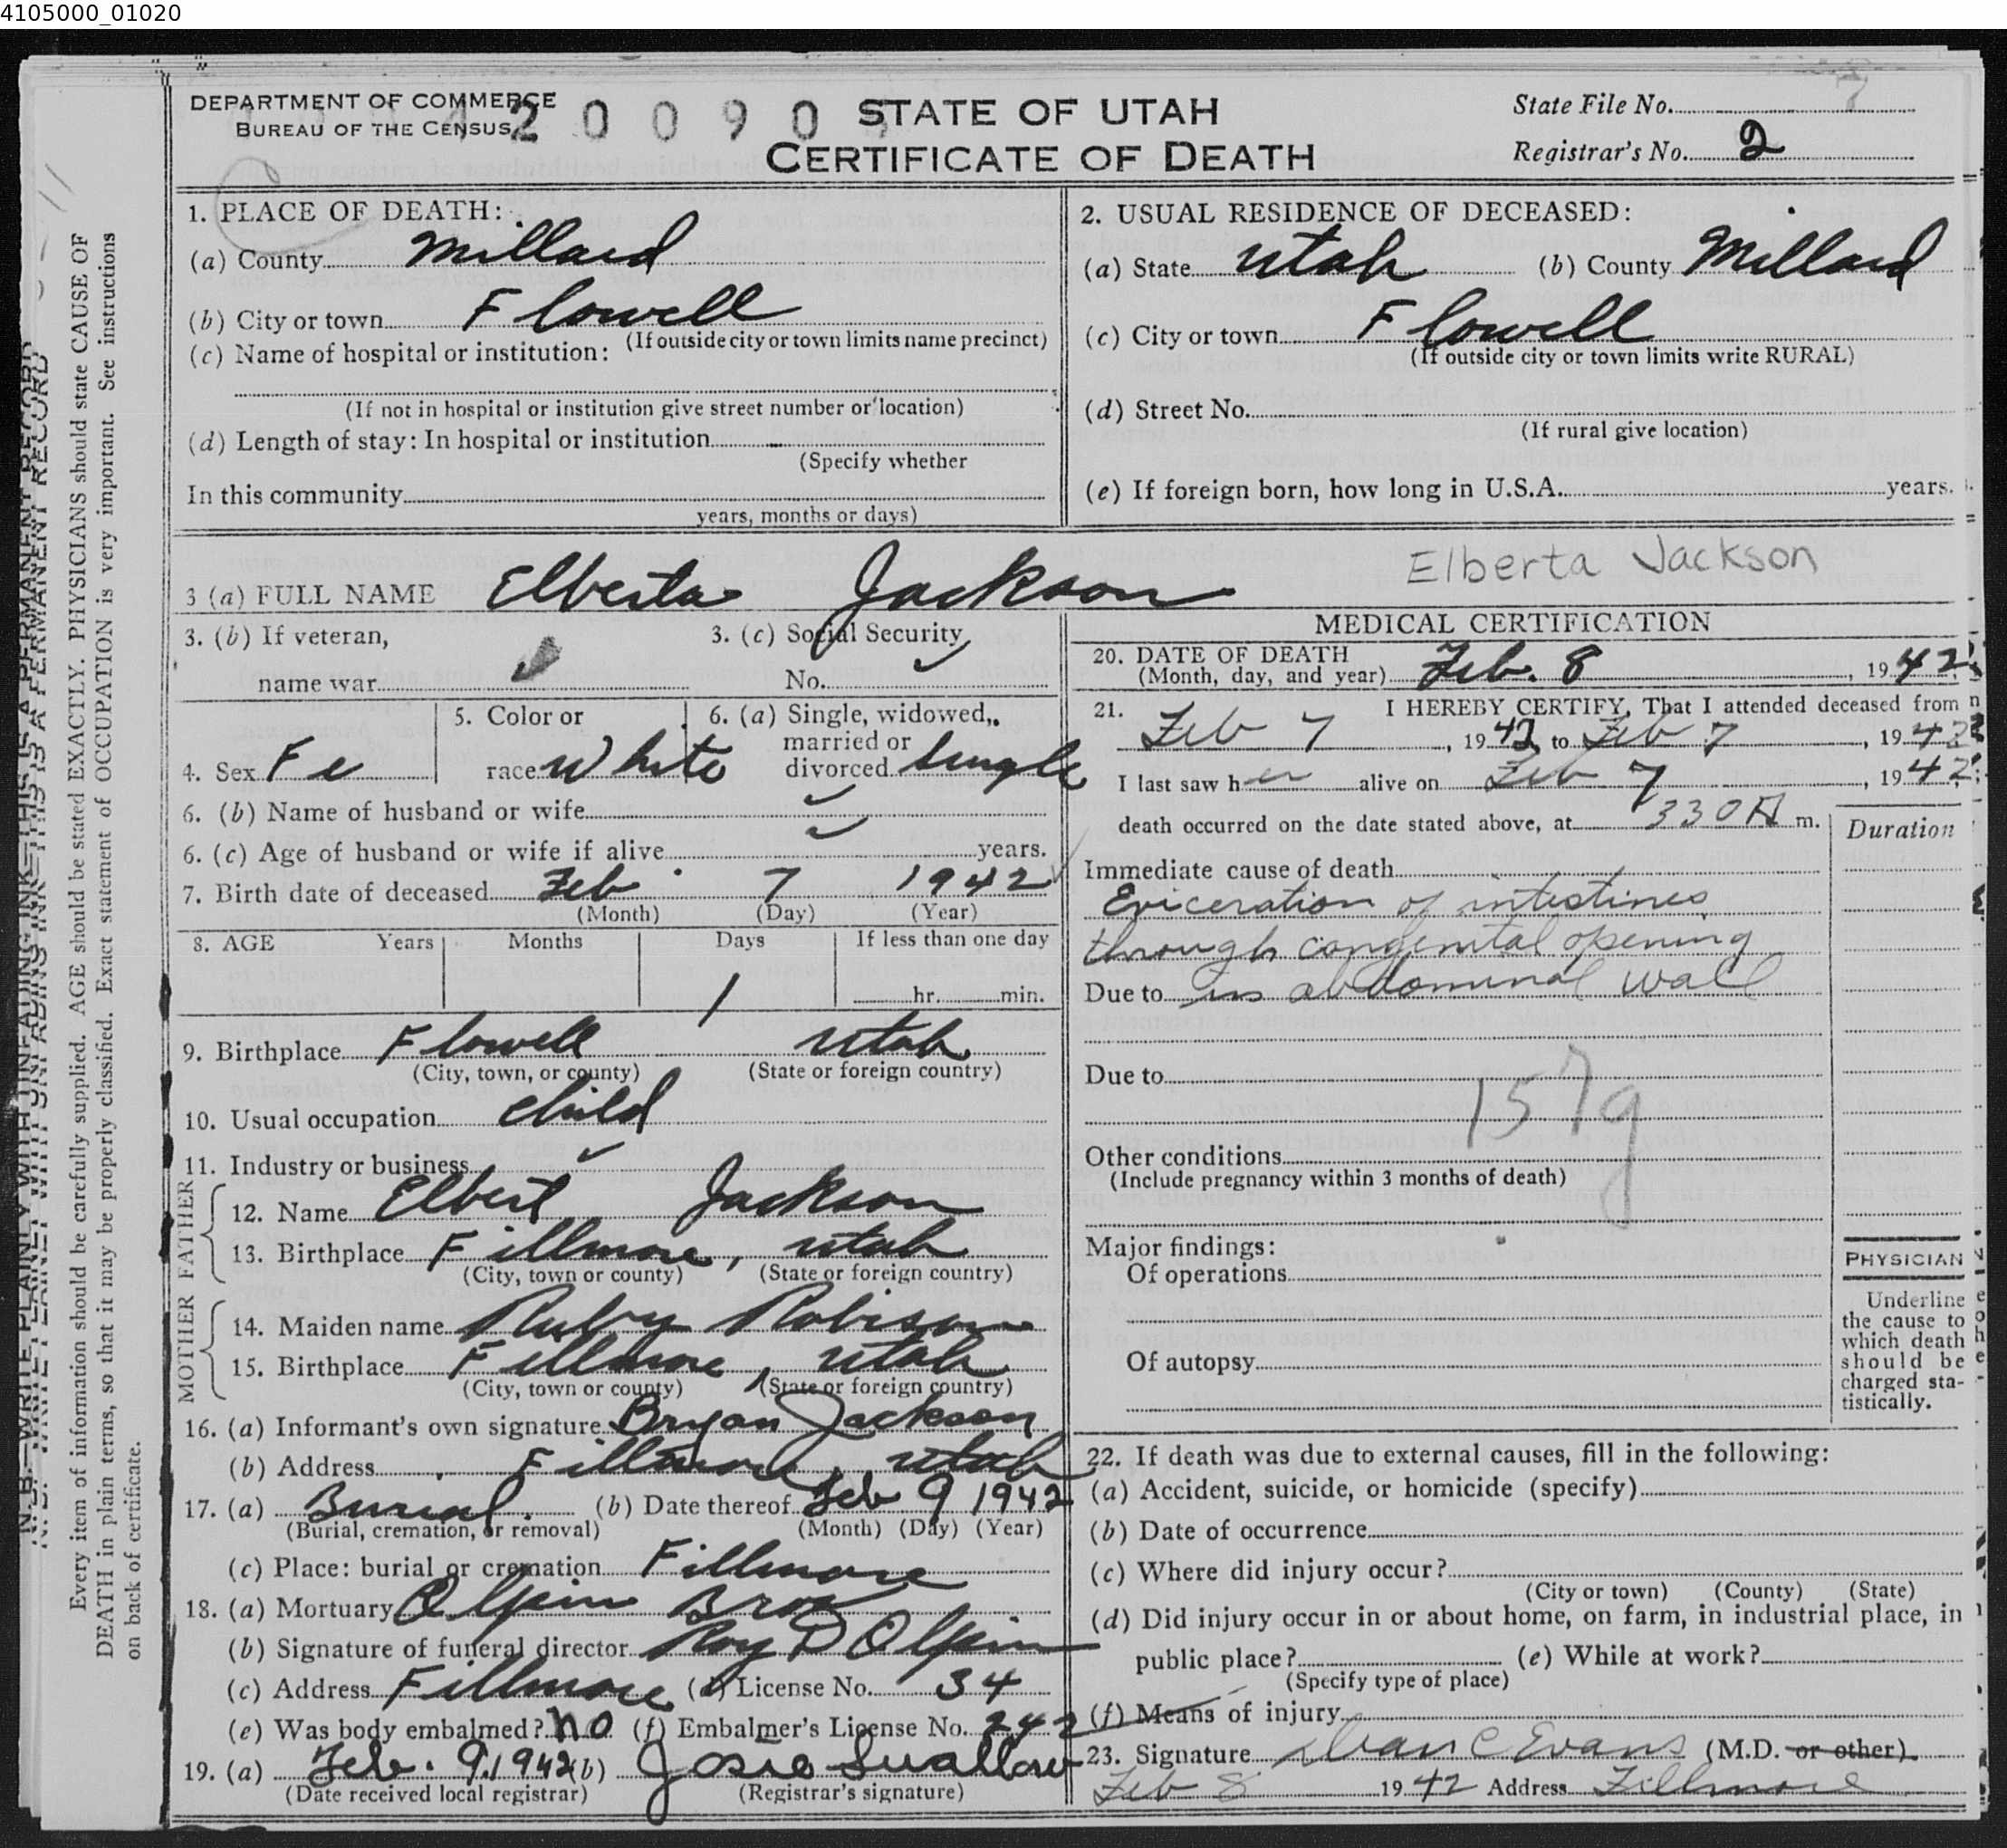 4105000_01020
DEPARTMENT OF COMMERCE
BUREAU OF THE CENSUS
2 0 0 9 0
STATE OF UTAH
CERTIFICATE OF DEATH
State File No. 7
Registrar's No. 2
1. PLACE OF DEATH:
(a) County Millard
(b) City or town Flowell
(If outside city or town limits name precinct)
(c) Name of hospital or institution:
(If not in hospital or institution give street number or location)
(d) Length of stay: In hospital or institution
(Specify whether
In this community
years, months or days)
2. USUAL RESIDENCE OF DECEASED:
(a) State Utah (b) County Millard
(c) City or town Flowell
(If outside city or town limits write RURAL)
(d) Street No.
(If rural give location)
(e) If foreign born, how long in U.S.A. years.
3 (a) FULL NAME Elberta Jackson
Elberta Jackson
3. (b) If veteran,
name war
3. (c) Social Security
No.
4. Sex Fe
5. Color or
race White
6. (a) Single, widowed,
married or
divorced Single
6. (b) Name of husband or wife
6. (c) Age of husband or wife if alive years.
7. Birth date of deceased Feb 7 1942
(Month) (Day) (Year)
8. AGE Years Months Days If less than one day
1 hr. min.
9. Birthplace Flowell Utah
(City, town, or county) (State or foreign country)
10. Usual occupation child
11. Industry or business
FATHER
12. Name Elbert Jackson
13. Birthplace Fillmore, Utah
(City, town or county) (State or foreign country)
MOTHER
14. Maiden name Ruby Robison
15. Birthplace Fillmore, Utah
(City, town or county) (State or foreign country)
16. (a) Informant's own signature Bryan Jackson
(b) Address Fillmore, Utah
17. (a) Burial (b) Date thereof Feb 9 1942
(Burial, cremation, or removal) (Month) (Day) (Year)
(c) Place: burial or cremation Fillmore
18. (a) Mortuary Olpin Bros
(b) Signature of funeral director Roy D Olpin
(c) Address Fillmore (d) License No. 34
(e) Was body embalmed? no (f) Embalmer's License No. 242
19. (a) Feb. 9, 1942 (b) Josie Swallow
(Date received local registrar) (Registrar's signature)
MEDICAL CERTIFICATION
20. DATE OF DEATH
(Month, day, and year) Feb. 8, 1942
21. I HEREBY CERTIFY, That I attended deceased from
Feb 7, 1942, to Feb 7, 1942
I last saw her alive on Feb 7, 1942;
death occurred on the date stated above, at 330 A m.
Duration
Immediate cause of death
Eviceration of intestines
through congenital opening
Due to in abdominal wall
Due to
157g
Other conditions
(Include pregnancy within 3 months of death)
Major findings:
Of operations
Of autopsy
PHYSICIAN
Underline
the cause to
which death
should be
charged sta-
tistically.
22. If death was due to external causes, fill in the following:
(a) Accident, suicide, or homicide (specify)
(b) Date of occurrence
(c) Where did injury occur?
(City or town) (County) (State)
(d) Did injury occur in or about home, on farm, in industrial place, in
public place? (e) While at work?
(Specify type of place)
(f) Means of injury
23. Signature Dean C Evans (M.D. or other)
Feb 8 1942 Address Fillmore
N.B.—WRITE PLAINLY WITH UNFADING INK—THIS IS A PERMANENT RECORD
Every item of information should be carefully supplied. AGE should be stated EXACTLY. PHYSICIANS should state CAUSE OF
DEATH in plain terms, so that it may be properly classified. Exact statement of OCCUPATION is very important. See instructions
on back of certificate.